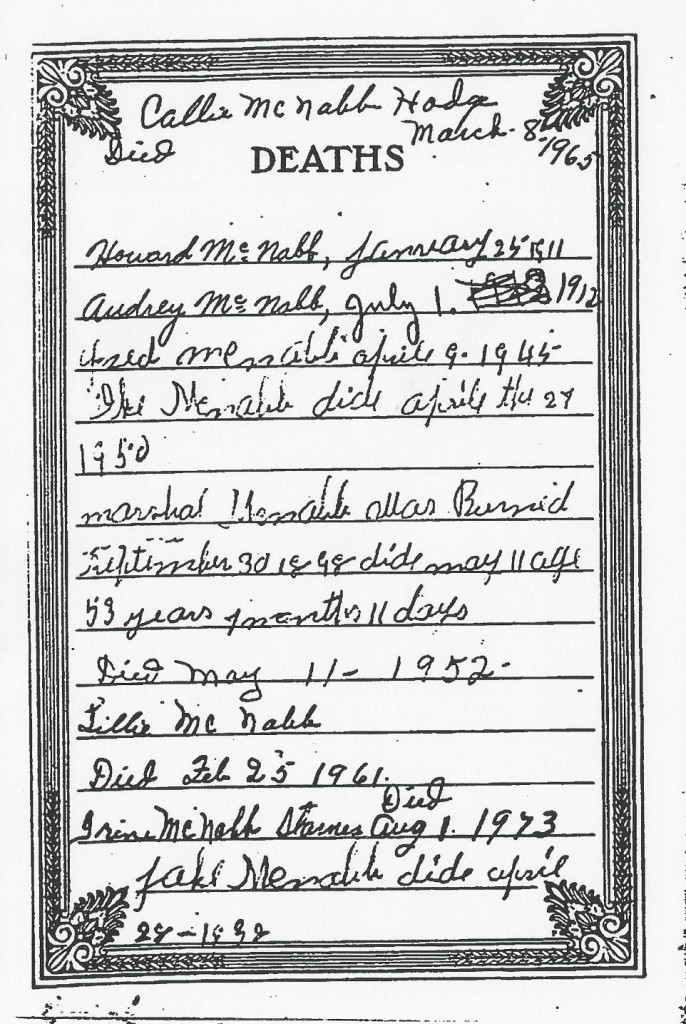 Callie McNabb Hodge
Died March 8-1965
DEATHS
Howard Mc Nabb, January 25 1911
Audrey Mc Nabb, July 1. 1912
Fred Mcnabb aprile 9-1945
Ike Mcnabb dide aprile the 27
1950
marshal Mcnabb was Burnid
September 30 1898 dide may 11 age
53 years months 11 days
Died May 11- 1952-
Lillie Mc Nabb
Died Feb 25 1961.
Died
Irine McNabb Starnes Aug 1. 1973
Jake Mcnabb dide april